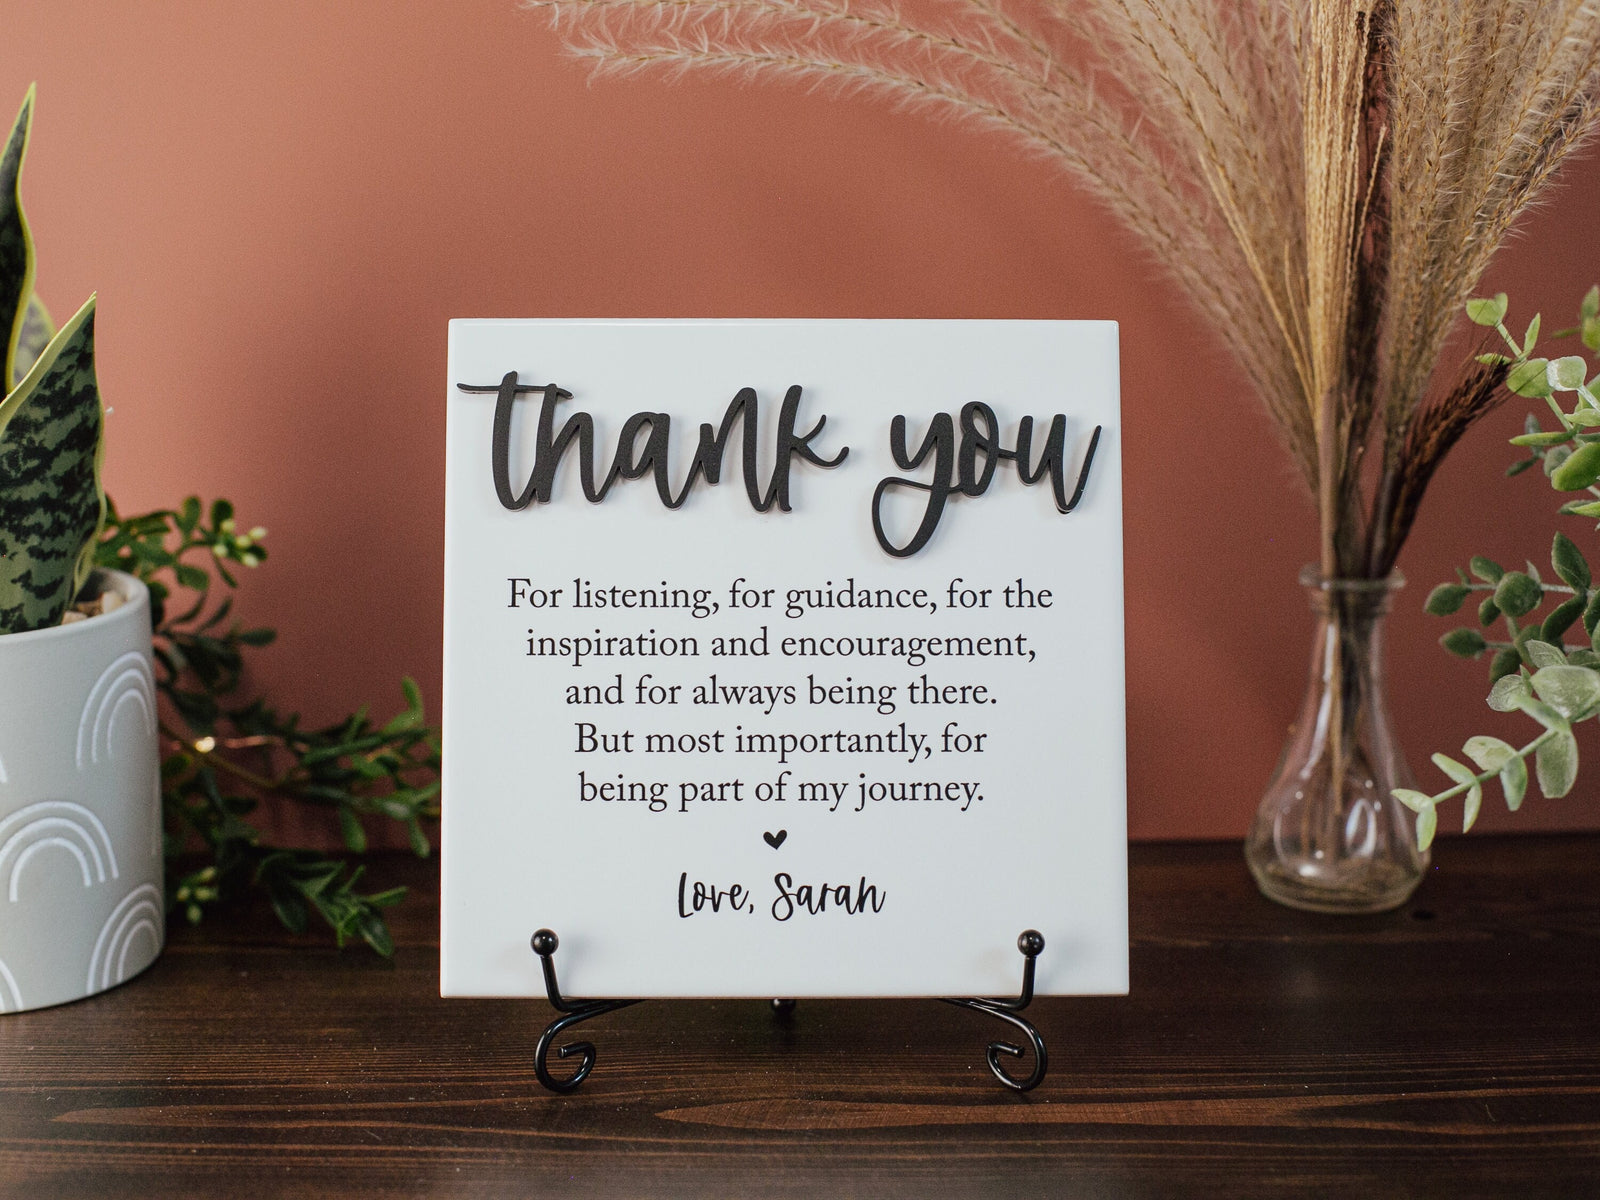 thank you
For listening, for guidance, for the
inspiration and encouragement,
and for always being there.
But most importantly, for
being part of my journey.
Love, Sarah